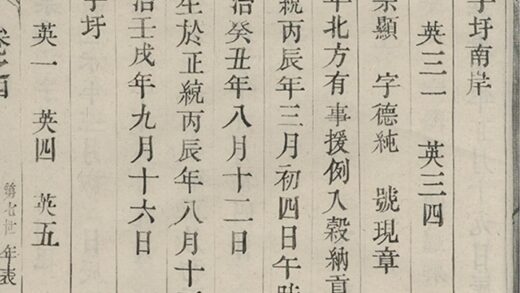 子圩南岸
英三一 英三四
宗顯 字德純 號現章
年北方有事援例入穀納貢
統丙辰年三月初四日午時
治癸丑年八月十二日
生於正統丙辰年八月十
治壬戌年九月十六日
子圩
英一 英四 英五
第七世 年表